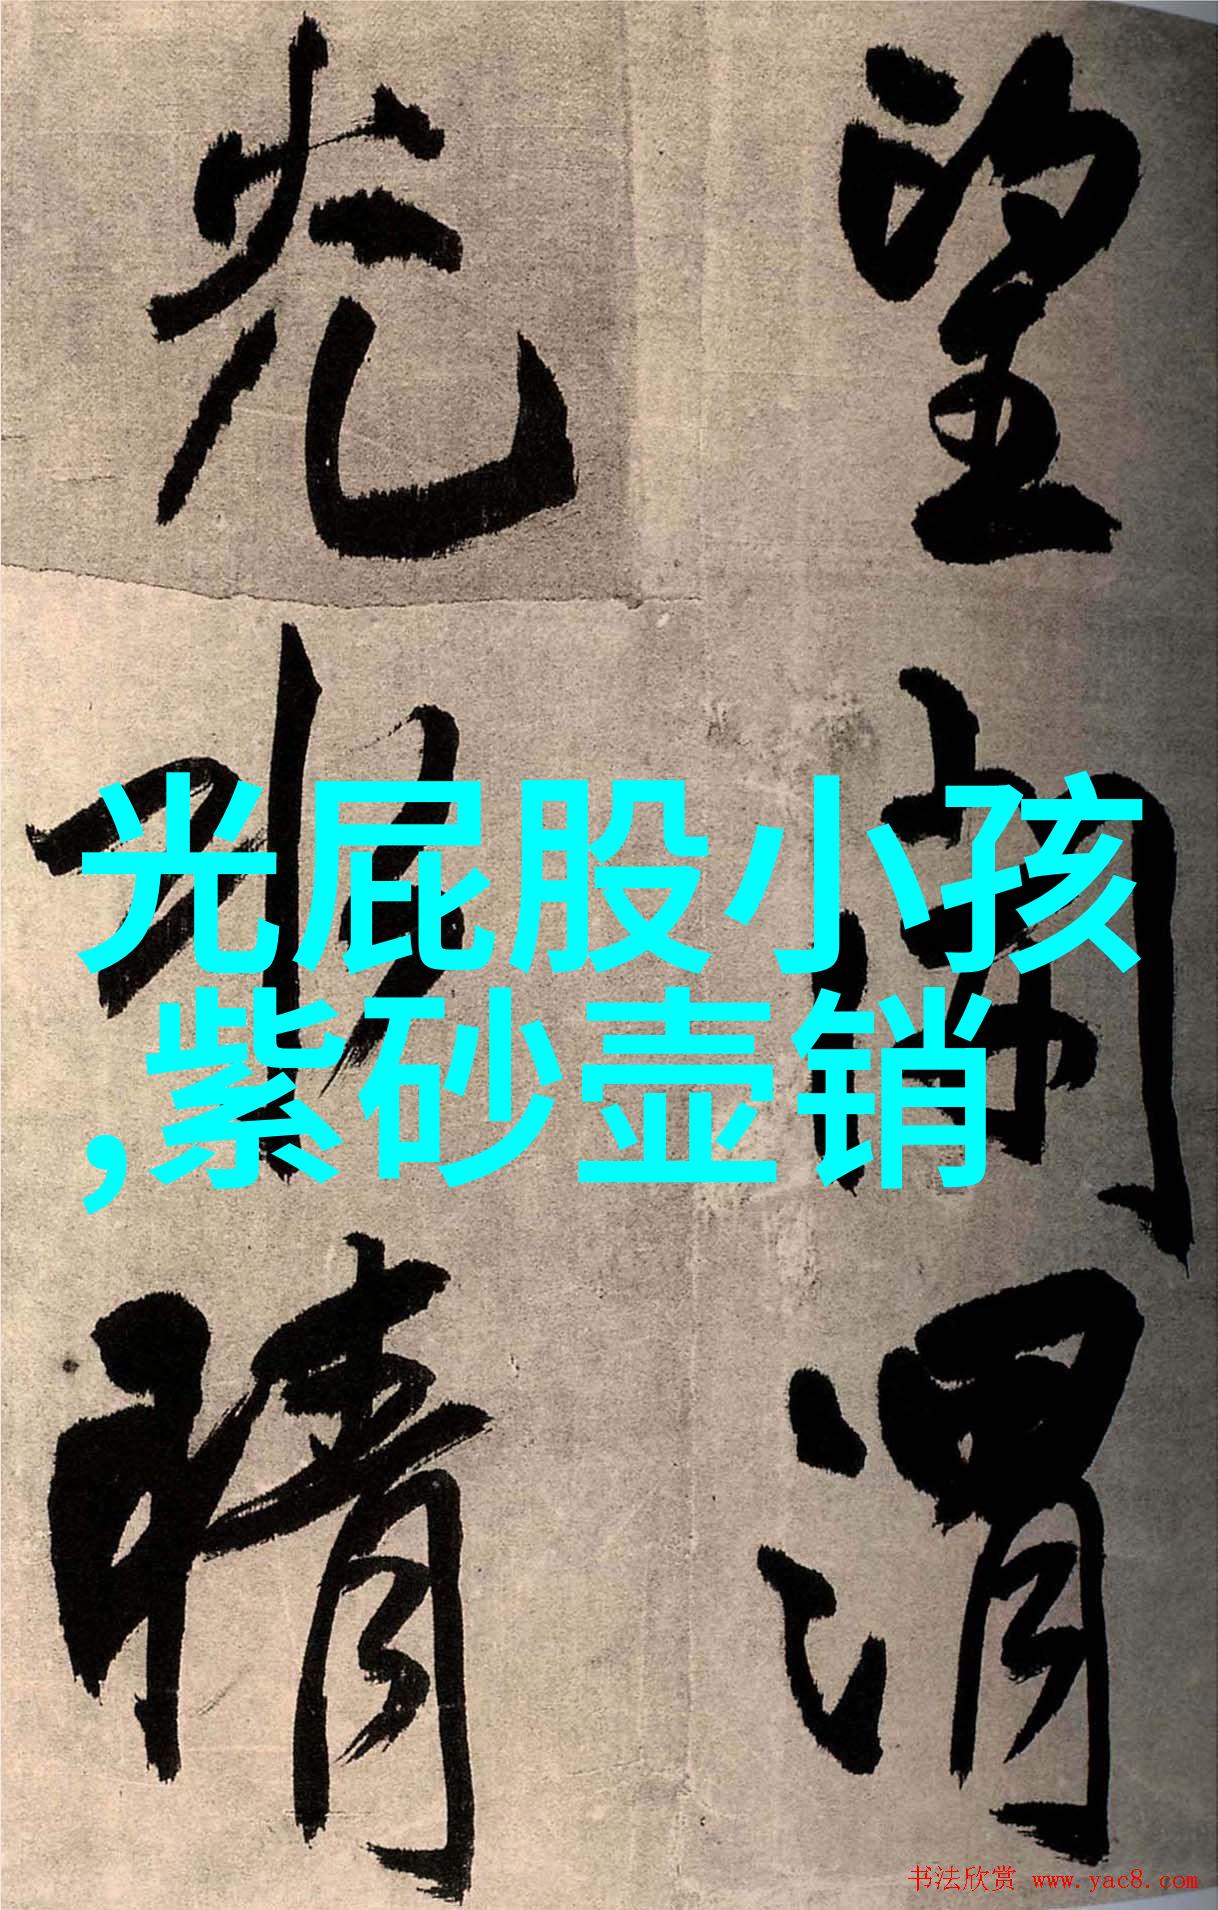 望渭
光晴
光屁股小孩
,紫砂壶销
书法欣赏 www.yac8.com